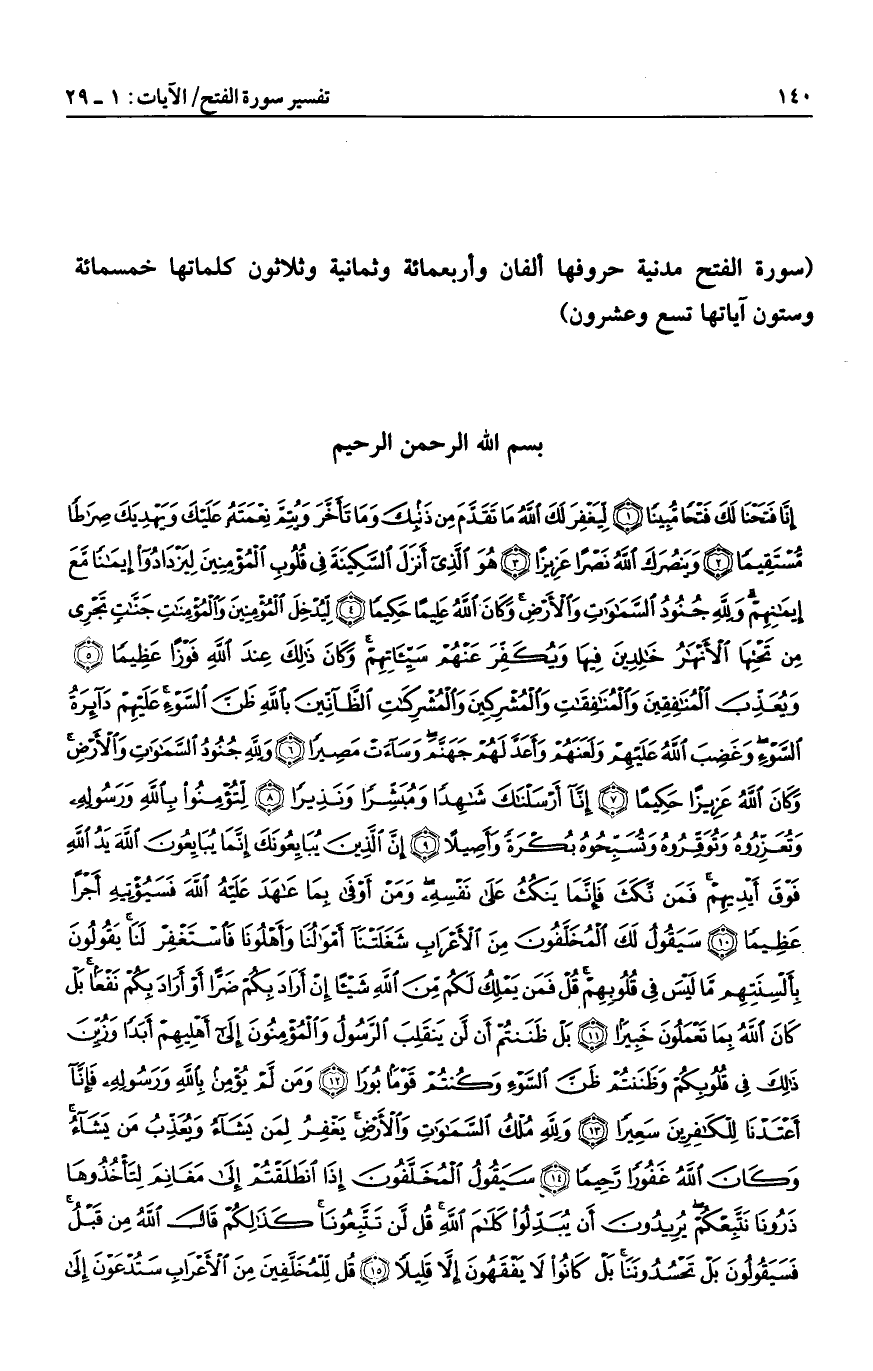 ١٤٠ تفسير سورة الفتح/ الآيات: ١ ـ ٢٩
(سورة الفتح مدنية حروفها ألفان وأربعمائة وثمانية وثلاثون كلماتها خمسمائة
وستون آياتها تسع وعشرون)
بسم الله الرحمن الرحيم
إِنَّا فَتَحْنَا لَكَ فَتْحًا مُّبِينًا ﴿١﴾ لِّيَغْفِرَ لَكَ ٱللَّهُ مَا تَقَدَّمَ مِن ذَنۢبِكَ وَمَا تَأَخَّرَ وَيُتِمَّ نِعْمَتَهُۥ عَلَيْكَ وَيَهْدِيَكَ صِرَٰطًا
مُّسْتَقِيمًا ﴿٢﴾ وَيَنصُرَكَ ٱللَّهُ نَصْرًا عَزِيزًا ﴿٣﴾ هُوَ ٱلَّذِىٓ أَنزَلَ ٱلسَّكِينَةَ فِى قُلُوبِ ٱلْمُؤْمِنِينَ لِيَزْدَادُوٓا۟ إِيمَٰنًا مَّعَ
إِيمَٰنِهِمْ ۗ وَلِلَّهِ جُنُودُ ٱلسَّمَٰوَٰتِ وَٱلْأَرْضِ ۚ وَكَانَ ٱللَّهُ عَلِيمًا حَكِيمًا ﴿٤﴾ لِّيُدْخِلَ ٱلْمُؤْمِنِينَ وَٱلْمُؤْمِنَٰتِ جَنَّٰتٍ تَجْرِى
مِن تَحْتِهَا ٱلْأَنْهَٰرُ خَٰلِدِينَ فِيهَا وَيُكَفِّرَ عَنْهُمْ سَيِّـَٔاتِهِمْ ۚ وَكَانَ ذَٰلِكَ عِندَ ٱللَّهِ فَوْزًا عَظِيمًا ﴿٥﴾
وَيُعَذِّبَ ٱلْمُنَٰفِقِينَ وَٱلْمُنَٰفِقَٰتِ وَٱلْمُشْرِكِينَ وَٱلْمُشْرِكَٰتِ ٱلظَّآنِّينَ بِٱللَّهِ ظَنَّ ٱلسَّوْءِ ۚ عَلَيْهِمْ دَآئِرَةُ
ٱلسَّوْءِ ۖ وَغَضِبَ ٱللَّهُ عَلَيْهِمْ وَلَعَنَهُمْ وَأَعَدَّ لَهُمْ جَهَنَّمَ ۖ وَسَآءَتْ مَصِيرًا ﴿٦﴾ وَلِلَّهِ جُنُودُ ٱلسَّمَٰوَٰتِ وَٱلْأَرْضِ ۚ
وَكَانَ ٱللَّهُ عَزِيزًا حَكِيمًا ﴿٧﴾ إِنَّآ أَرْسَلْنَٰكَ شَٰهِدًا وَمُبَشِّرًا وَنَذِيرًا ﴿٨﴾ لِّتُؤْمِنُوا۟ بِٱللَّهِ وَرَسُولِهِۦ
وَتُعَزِّرُوهُ وَتُوَقِّرُوهُ وَتُسَبِّحُوهُ بُكْرَةً وَأَصِيلًا ﴿٩﴾ إِنَّ ٱلَّذِينَ يُبَايِعُونَكَ إِنَّمَا يُبَايِعُونَ ٱللَّهَ يَدُ ٱللَّهِ
فَوْقَ أَيْدِيهِمْ ۚ فَمَن نَّكَثَ فَإِنَّمَا يَنكُثُ عَلَىٰ نَفْسِهِۦ ۖ وَمَنْ أَوْفَىٰ بِمَا عَٰهَدَ عَلَيْهُ ٱللَّهَ فَسَيُؤْتِيهِ أَجْرًا
عَظِيمًا ﴿١٠﴾ سَيَقُولُ لَكَ ٱلْمُخَلَّفُونَ مِنَ ٱلْأَعْرَابِ شَغَلَتْنَآ أَمْوَٰلُنَا وَأَهْلُونَا فَٱسْتَغْفِرْ لَنَا ۚ يَقُولُونَ
بِأَلْسِنَتِهِم مَّا لَيْسَ فِى قُلُوبِهِمْ ۚ قُلْ فَمَن يَمْلِكُ لَكُم مِّنَ ٱللَّهِ شَيْـًٔا إِنْ أَرَادَ بِكُمْ ضَرًّا أَوْ أَرَادَ بِكُمْ نَفْعًۢا ۚ بَلْ
كَانَ ٱللَّهُ بِمَا تَعْمَلُونَ خَبِيرًۢا ﴿١١﴾ بَلْ ظَنَنتُمْ أَن لَّن يَنقَلِبَ ٱلرَّسُولُ وَٱلْمُؤْمِنُونَ إِلَىٰٓ أَهْلِيهِمْ أَبَدًا وَزُيِّنَ
ذَٰلِكَ فِى قُلُوبِكُمْ وَظَنَنتُمْ ظَنَّ ٱلسَّوْءِ وَكُنتُمْ قَوْمًۢا بُورًا ﴿١٢﴾ وَمَن لَّمْ يُؤْمِنۢ بِٱللَّهِ وَرَسُولِهِۦ فَإِنَّآ
أَعْتَدْنَا لِلْكَٰفِرِينَ سَعِيرًا ﴿١٣﴾ وَلِلَّهِ مُلْكُ ٱلسَّمَٰوَٰتِ وَٱلْأَرْضِ ۚ يَغْفِرُ لِمَن يَشَآءُ وَيُعَذِّبُ مَن يَشَآءُ ۚ
وَكَانَ ٱللَّهُ غَفُورًا رَّحِيمًا ﴿١٤﴾ سَيَقُولُ ٱلْمُخَلَّفُونَ إِذَا ٱنطَلَقْتُمْ إِلَىٰ مَغَانِمَ لِتَأْخُذُوهَا
ذَرُونَا نَتَّبِعْكُمْ ۖ يُرِيدُونَ أَن يُبَدِّلُوا۟ كَلَٰمَ ٱللَّهِ ۚ قُل لَّن تَتَّبِعُونَا ۚ كَذَٰلِكُمْ قَالَ ٱللَّهُ مِن قَبْلُ ۖ
فَسَيَقُولُونَ بَلْ تَحْسُدُونَنَا ۚ بَلْ كَانُوا۟ لَا يَفْقَهُونَ إِلَّا قَلِيلًا ﴿١٥﴾ قُل لِّلْمُخَلَّفِينَ مِنَ ٱلْأَعْرَابِ سَتُدْعَوْنَ إِلَىٰ